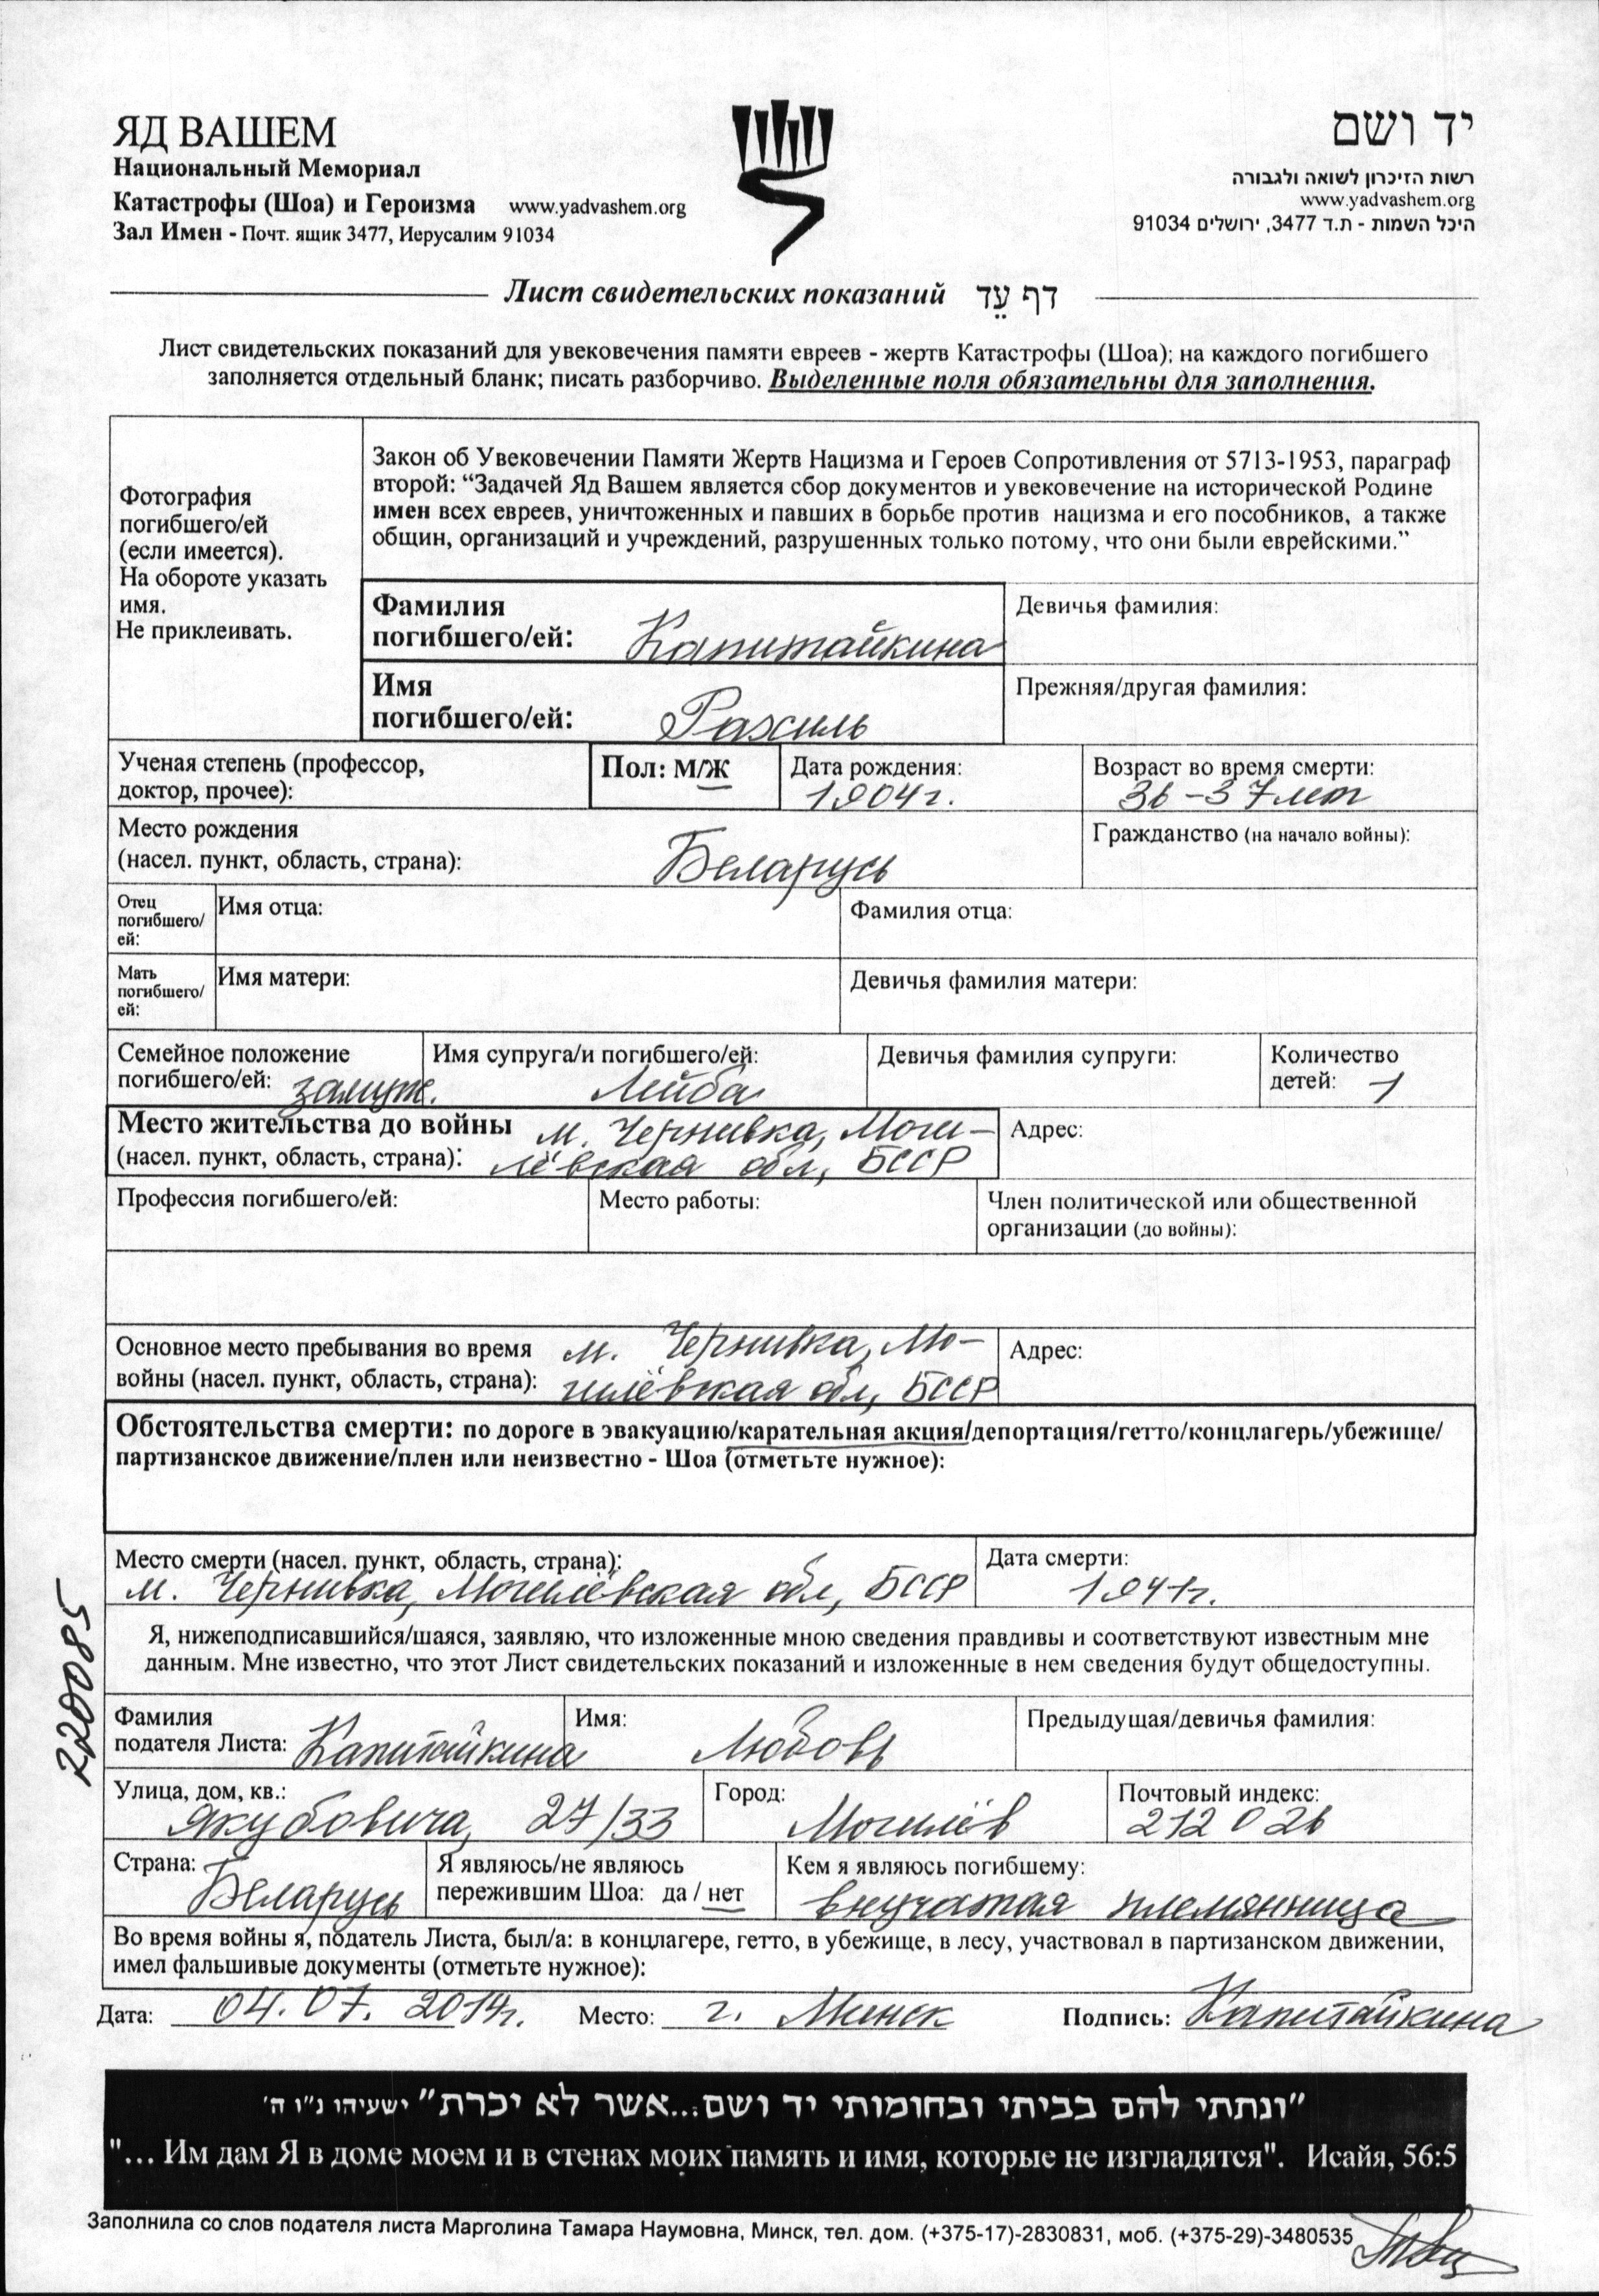 ЯД ВАШЕМ
יד ושם
Национальный Мемориал
Катастрофы (Шоа) и Героизма www.yadvashem.org
Зал Имен - Почт. ящик 3477, Иерусалим 91034
רשות הזיכרון לשואה ולגבורה
www.yadvashem.org
היכל השמות - ת.ד 3477, ירושלים 91034
Лист свидетельских показаний דף עֵד
Лист свидетельских показаний для увековечения памяти евреев - жертв Катастрофы (Шоа); на каждого погибшего
заполняется отдельный бланк; писать разборчиво. Выделенные поля обязательны для заполнения.
Фотография
погибшего/ей
(если имеется).
На обороте указать
имя.
Не приклеивать.
Закон об Увековечении Памяти Жертв Нацизма и Героев Сопротивления от 5713-1953, параграф
второй: “Задачей Яд Вашем является сбор документов и увековечение на исторической Родине
имен всех евреев, уничтоженных и павших в борьбе против нацизма и его пособников, а также
общин, организаций и учреждений, разрушенных только потому, что они были еврейскими.”
Фамилия
погибшего/ей: Капитайкина
Девичья фамилия:
Имя
погибшего/ей: Рахиль
Прежняя/другая фамилия:
Ученая степень (профессор,
доктор, прочее):
Пол: М/Ж
Дата рождения:
1904 г.
Возраст во время смерти:
36-37 лет
Место рождения
(насел. пункт, область, страна): Беларусь
Гражданство (на начало войны):
Отец
погибшего/
ей:
Имя отца:
Фамилия отца:
Мать
погибшего/
ей:
Имя матери:
Девичья фамилия матери:
Семейное положение
погибшего/ей: замуж.
Имя супруга/и погибшего/ей:
Лейба
Девичья фамилия супруги:
Количество
детей: 1
Место жительства до войны м. Чернивка, Моги-
(насел. пункт, область, страна): лёвская обл, БССР
Адрес:
Профессия погибшего/ей:
Место работы:
Член политической или общественной
организации (до войны):
Основное место пребывания во время м. Чернивка, Мо-
войны (насел. пункт, область, страна): гилёвская обл, БССР
Адрес:
Обстоятельства смерти: по дороге в эвакуацию/карательная акция/депортация/гетто/концлагерь/убежище/
партизанское движение/плен или неизвестно - Шоа (отметьте нужное):
Место смерти (насел. пункт, область, страна):
м. Чернивка, Могилёвская обл, БССР
Дата смерти:
1941 г.
Я, нижеподписавшийся/шаяся, заявляю, что изложенные мною сведения правдивы и соответствуют известным мне
данным. Мне известно, что этот Лист свидетельских показаний и изложенные в нем сведения будут общедоступны.
220085
Фамилия
подателя Листа: Капитайкина
Имя: Любовь
Предыдущая/девичья фамилия:
Улица, дом, кв.:
Якубовича, 27/33
Город:
Могилёв
Почтовый индекс:
212026
Страна:
Беларусь
Я являюсь/не являюсь
пережившим Шоа: да / нет
Кем я являюсь погибшему:
внучатая племянница
Во время войны я, податель Листа, был/а: в концлагере, гетто, в убежище, в лесу, участвовал в партизанском движении,
имел фальшивые документы (отметьте нужное):
Дата: 04.07.2014г. Место: г. Минск Подпись: Капитайкина
"ונתתי להם בביתי ובחומותי יד ושם...אשר לא יכרת" ישעיהו נ"ו ה'
"... Им дам Я в доме моем и в стенах моих память и имя, которые не изгладятся". Исайя, 56:5
Заполнила со слов подателя листа Марголина Тамара Наумовна, Минск, тел. дом. (+375-17)-2830831, моб. (+375-29)-3480535